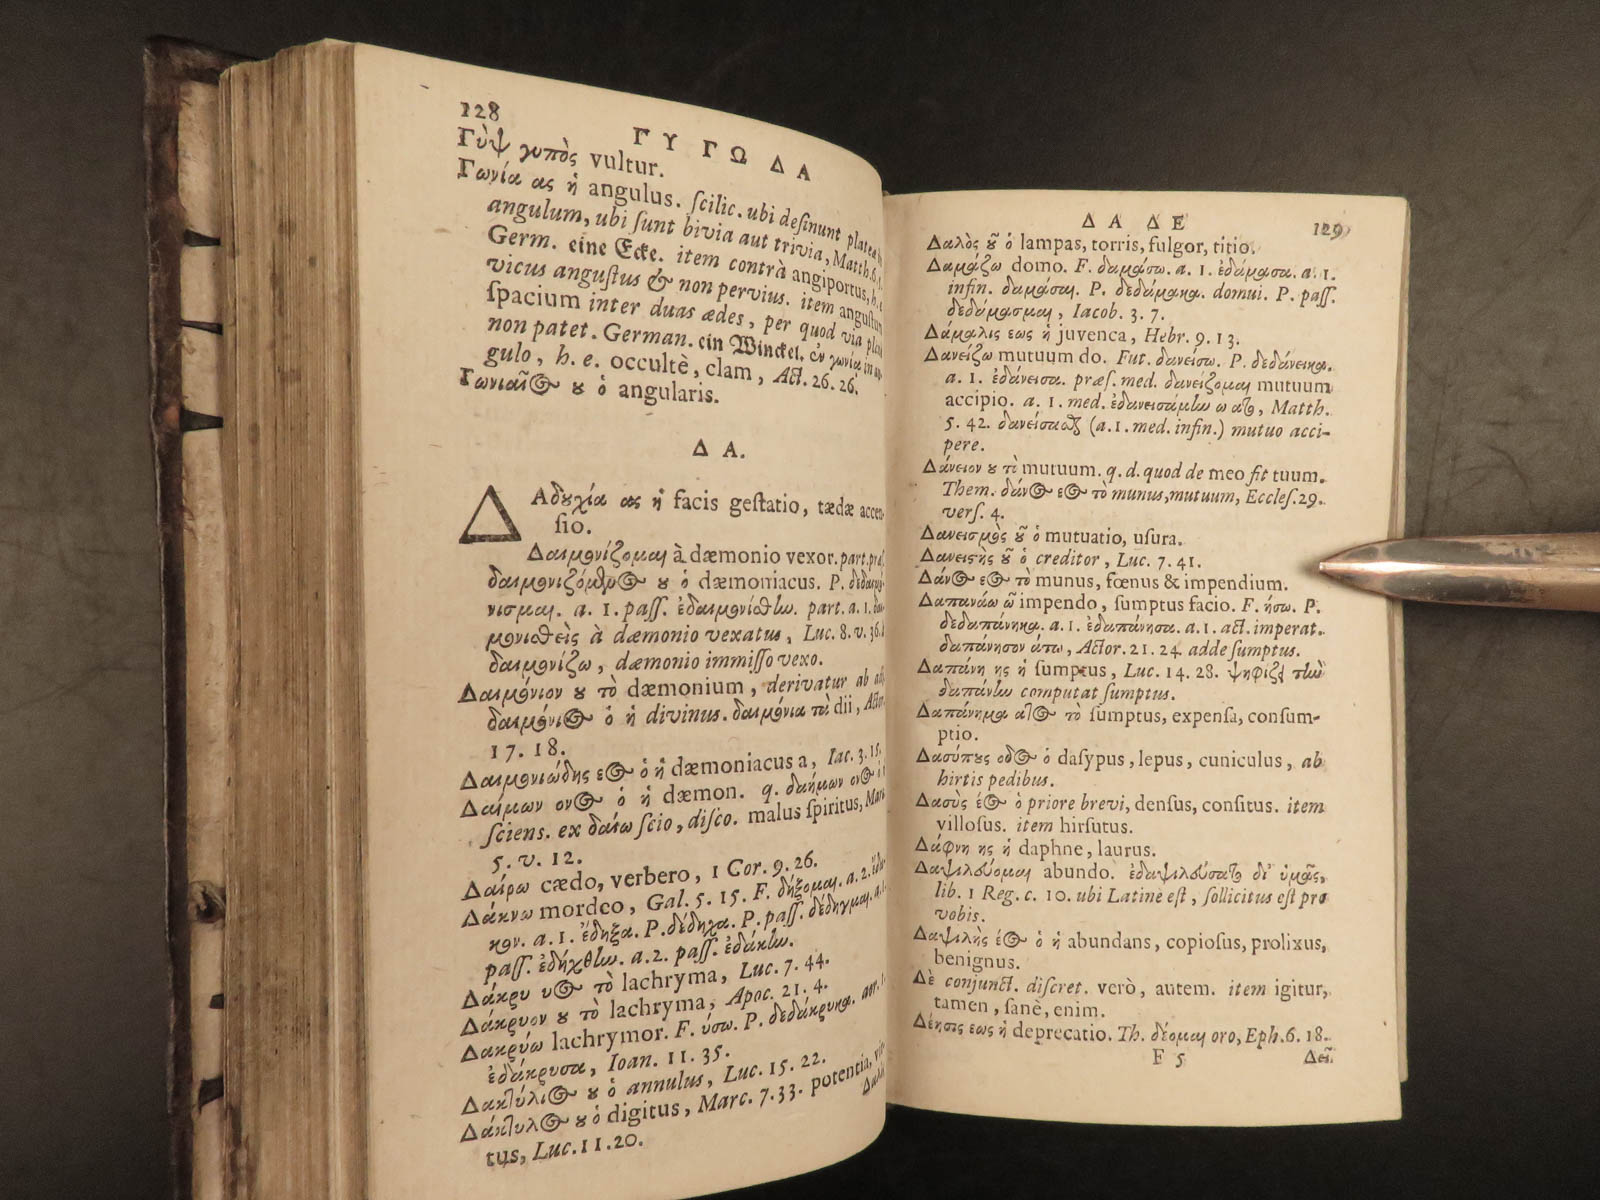 128
ΓΥ ΓΩ ΔΑ
Γὺψ γυπὸς vultur.
Γωνία ας ἡ angulus. ſcilic. ubi deſinunt plateæ
angulum, ubi ſunt bivia aut trivia, Matth. 6.
Germ. eine Ecke. item contrà angiportus, h. e
vicus anguſtus & non pervius. item anguſtum
ſpacium inter duas ædes, per quod via
non patet. German. ein Winckel. ἐν γωνίᾳ in an-
gulo, h. e. occultè, clam, Act. 26. 26.
Γωνιαῖος ου ὁ angularis.
ΔΑ.
ΔΑδυχία ας ἡ facis geſtatio, tædæ accen-
ſio.
Δαιμονίζομαι à dæmonio vexor. part. præſ.
δαιμονιζόμενος ου ὁ dæmoniacus. P. δεδαιμό-
νισμαι. a. 1. paſſ. ἐδαιμονίσθην. part. a. 1. δαι-
μονισθεὶς à dæmonio vexatus, Luc. 8. v. 36.
δαιμονίζω, dæmonio immiſſo vexo.
Δαιμόνιον ου τὸ dæmonium, derivatur ab
δαιμόνιος ὁ ἡ divinus. δαιμόνια τὰ dii, Actor.
17. 18.
Δαιμονιώδης εος ὁ ἡ dæmoniacus a, Iac. 3. 15.
Δαίμων ονος ὁ ἡ dæmon. q. δαήμων ονος ὁ ἡ
ſciens. ex δαίω ſcio, diſco. malus ſpiritus, Marc.
5. v. 12.
Δαίρω cædo, verbero, 1 Cor. 9. 26.
Δάκνω mordeo, Gal. 5. 15. F. δήξομαι. a. 2. ἔδα-
κον. a. 1. ἔδηξα. P. δέδηχα. P. paſſ. δέδηγμαι. a. 1.
paſſ. ἐδήχθην. a. 2. paſſ. ἐδάκην.
Δάκρυ υος τὸ lachryma, Luc. 7. 44.
Δάκρυον ου τὸ lachryma, Apoc. 21. 4.
Δακρύω lachrymor. F. ύσω. P. δεδάκρυκα. aor. 1.
ἐδάκρυσα, Ioan. 11. 35.
Δακτύλιος ου ὁ annulus, Luc. 15. 22.
Δάκτυλος ου ὁ digitus, Marc. 7. 33. potentia, vir-
tus, Luc. 11. 20.
ΔΑ ΔΕ
129
Δαλὸς οῦ ὁ lampas, torris, fulgor, titio.
Δαμάζω domo. F. δαμάσω. a. 1. ἐδάμασα. a. 1.
infin. δαμάσαι. P. δεδάμακα. domui. P. paſſ.
δεδάμασμαι, Iacob. 3. 7.
Δάμαλις εως ἡ juvenca, Hebr. 9. 13.
Δανείζω mutuum do. Fut. δανείσω. P. δεδάνεικα.
a. 1. ἐδάνεισα. præſ. med. δανείζομαι mutuum
accipio. a. 1. med. ἐδανεισάμην ω ατο, Matth.
5. 42. δανείσασθαι (a. 1. med. infin.) mutuo acci-
pere.
Δάνειον ου τὸ mutuum. q. d. quod de meo fit tuum.
Them. δάνος εος τὸ munus, mutuum, Eccleſ. 29.
verſ. 4.
Δανεισμὸς οῦ ὁ mutuatio, uſura.
Δανειστὴς οῦ ὁ creditor, Luc. 7. 41.
Δάνος εος τὸ munus, fœnus & impendium.
Δαπανάω ῶ impendo, ſumptus facio. F. ήσω. P.
δεδαπάνηκα. a. 1. ἐδαπάνησα. a. 1. act. imperat.
δαπάνησον άτω, Actor. 21. 24. adde ſumptus.
Δαπάνη ης ἡ ſumptus, Luc. 14. 28. ψηφίζει τὴν
δαπάνην computat ſumptus.
Δαπάνημα ατος τὸ ſumptus, expenſa, conſum-
ptio.
Δασύπους οδος ὁ daſypus, lepus, cuniculus, ab
hirtis pedibus.
Δασὺς έος ὁ priore brevi, denſus, conſitus. item
villoſus. item hirſutus.
Δάφνη ης ἡ daphne, laurus.
Δαψιλεύομαι abundo. ἐδαψιλεύσατο δι᾽ ὑμᾶς,
lib. 1 Reg. c. 10. ubi Latinè eſt, ſollicitus eſt pro
vobis.
Δαψιλὴς έος ὁ ἡ abundans, copioſus, prolixus,
benignus.
Δὲ conjunct. diſcret. verò, autem. item igitur,
tamen, ſanè, enim.
Δέησις εως ἡ deprecatio. Th. δέομαι oro, Eph. 6. 18.
F 5
Δεῖ